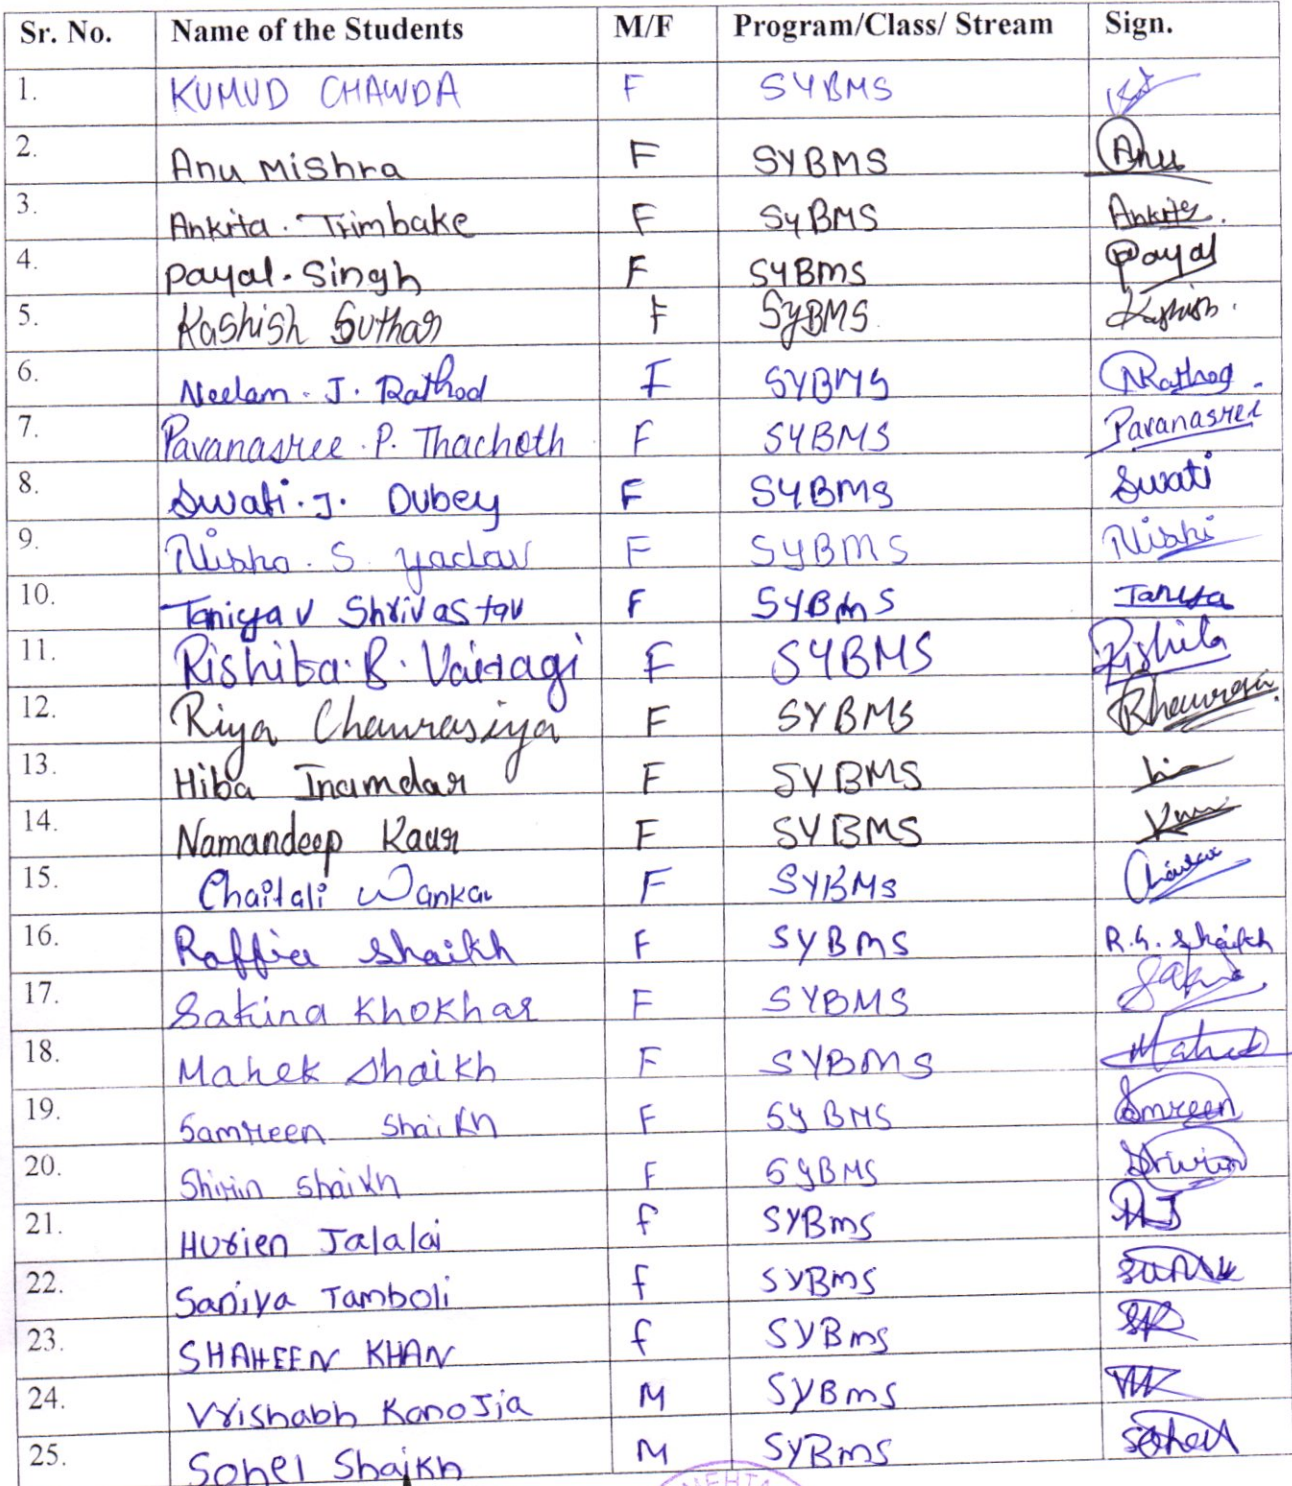 Sr. No. Name of the Students M/F Program/Class/ Stream Sign.
1. KUMUD CHAWDA F SYBMS
2. Anu Mishra F SYBMS Anu
3. Ankita. Trimbake F SyBMS Ankita.
4. Payal. Singh F SYBMS Payal
5. Kashish Suthar F SyBMS Kashish.
6. Neelam. J. Rathod F SYBMS NRathod
7. Pavanasree. P. Thachoth F SYBMS Pavanasree
8. Swati. J. Dubey F SYBMS Swati
9. Nisha. S. yadav F SYBMS
10. Taniya V Shrivastav F SYBmS Taniya
11. Rishita. B. Vairagi F SYBMS Rishita
12. Riya Chaurasiya F SYBMS
13. Hiba Inamdar F SYBMS
14. Namandeep Kaur F SYBMS
15. Chaitali Wankar F SYBMS
16. Raffia Shaikh F SYBMS R.G. Shaikh
17. Sakina Khokhar F SYBMS
18. Mahek Shaikh F SYBMS Mahek
19. Samreen Shaikh F SYBMS Smreen
20. Shirin Shaikh F SYBMS Shirin
21. Hurien Jalalai f SYBmS HJ
22. Saniya Tamboli f SYBmS
23. SHAHEEN KHAN f SYBmS SK
24. Vrishabh Kanojia M SYBmS VK
25. Sohel Shaikh M SYBmS Sohel
MEHTA